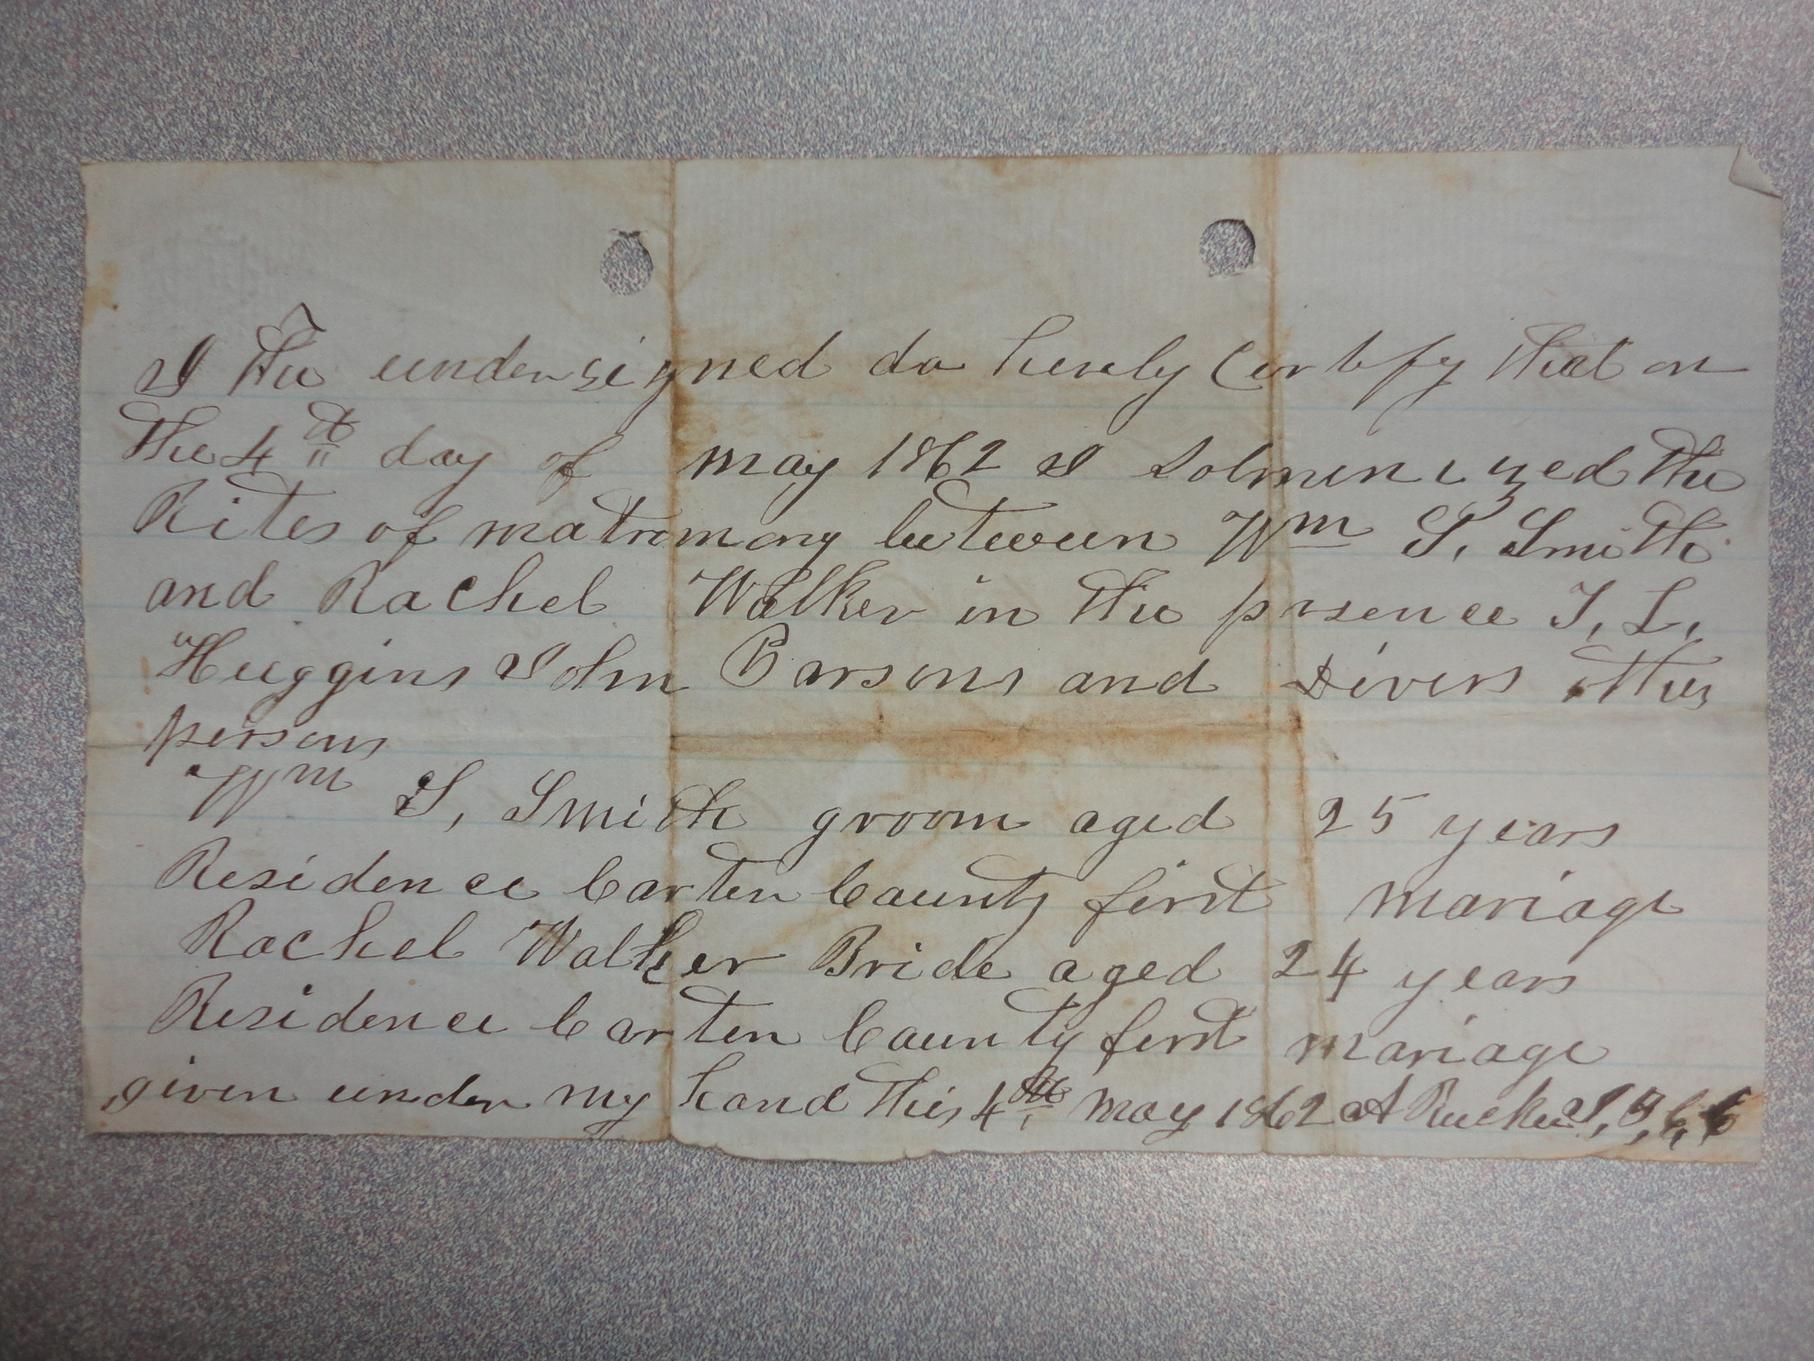 I the undersigned do herely Certify that on
the 4th day of may 1862 I Solmenized the
Rites of matromony between Wm S. Smith
and Rachel Walker in the presence T. L.
Huggins John Parsons and Divers other
persons
Wm S, Smith groom aged 25 years
Residence Carter County first mariage
Rachel Walker Bride aged 24 years
Residence Carter County first mariage
given under my hand this 4th may 1862 A Rucker